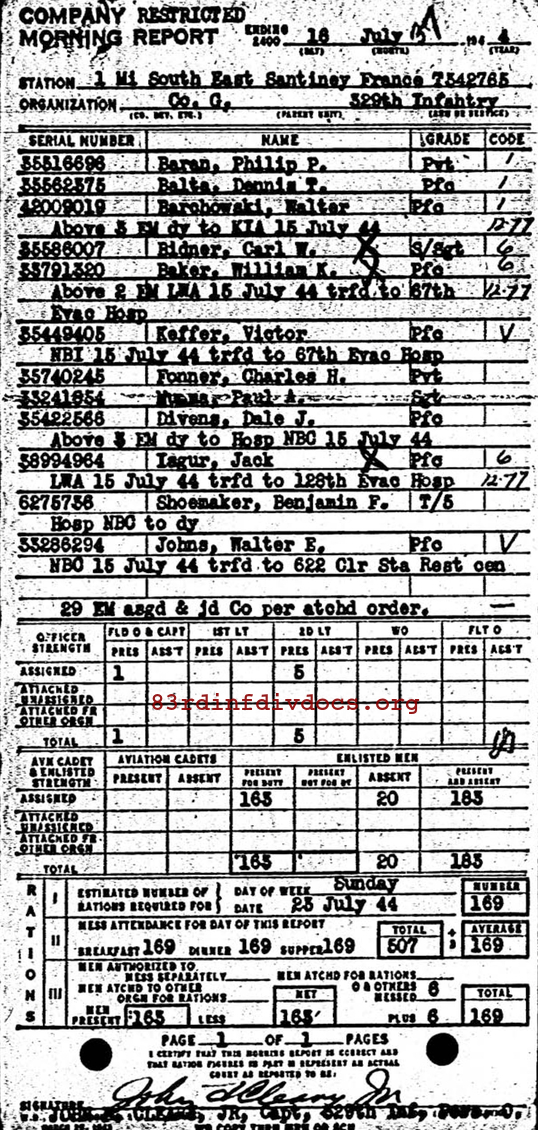 COMPANY RESTRICTED
MORNING REPORT ENDING 2400 16 July 194 4
(DAY) (MONTH) (YEAR)
STATION 1 Mi South East Santiney France 7342765
ORGANIZATION Co. G, 329th Infantry
(CO. DET, ETC.) (PARENT UNIT) (ARM OR SERVICE)
SERIAL NUMBER NAME GRADE CODE
35516696 Baran, Philip P. Pvt 1
35562375 Balta, Dennis T. Pfc 1
42009019 Barchowski, Walter Pfc 1
Above 3 EM dy to KIA 15 July 44 12-77
35586007 Bidner, Carl W. X S/Sgt 6
33791320 Baker, William K. X Pfc 6
Above 2 EM LWA 15 July 44 trfd to 67th 12-77
Evac Hosp
35449405 Keffer, Victor Pfc V
NBI 15 July 44 trfd to 67th Evac Hosp
35740245 Fonner, Charles H. Pvt
33241654 Paul A. Sgt
35422566 Divens, Dale J. Pfc
Above 3 EM dy to Hosp NBC 15 July 44
38994964 Isgur, Jack X Pfc 6
LWA 15 July 44 trfd to 128th Evac Hosp 12-77
6275736 Shoemaker, Benjamin F. T/5
Hosp NBC to dy
33286294 Johns, Walter E. Pfc V
NBC 15 July 44 trfd to 622 Clr Sta Rest cen
29 EM asgd & jd Co per atchd order. —
OFFICER STRENGTH FLD O & CAPT 1ST LT 2D LT WO FLT O
PRES ABS'T PRES ABS'T PRES ABS'T PRES ABS'T PRES ABS'T
ASSIGNED 1 5
ATTACHED UNASSIGNED
83rdinfdivdocs.org
ATTACHED FR OTHER ORGN
TOTAL 1 5
AVN CADET & ENLISTED STRENGTH AVIATION CADETS ENLISTED MEN
PRESENT ABSENT PRESENT FOR DUTY PRESENT NOT FOR DY ABSENT PRESENT AND ABSENT
ASSIGNED 165 20 185
ATTACHED UNASSIGNED
ATTACHED FR OTHER ORGN
TOTAL 165 20 185
RATIONS
I ESTIMATED NUMBER OF RATIONS REQUIRED FOR DAY OF WEEK Sunday NUMBER
DATE 23 July 44 169
II MESS ATTENDANCE FOR DAY OF THIS REPORT TOTAL ÷ 3 AVERAGE
BREAKFAST 169 DINNER 169 SUPPER 169 507 169
III MEN AUTHORIZED TO MESS SEPARATELY MEN ATCHD FOR RATIONS
MEN ATCHD TO OTHER ORGN FOR RATIONS NET O & OTHERS MESSED 6 TOTAL
MEN PRESENT 165 LESS 165 PLUS 6 169
PAGE 1 OF 1 PAGES
I CERTIFY THAT THIS MORNING REPORT IS CORRECT AND
THAT RATION FIGURES IN PART III REPRESENT AN ACTUAL
COUNT AS REPORTED TO ME:
SIGNATURE John J Cleary Jr
CLEARY, JR, Capt, 329th Inf, Pers. O.